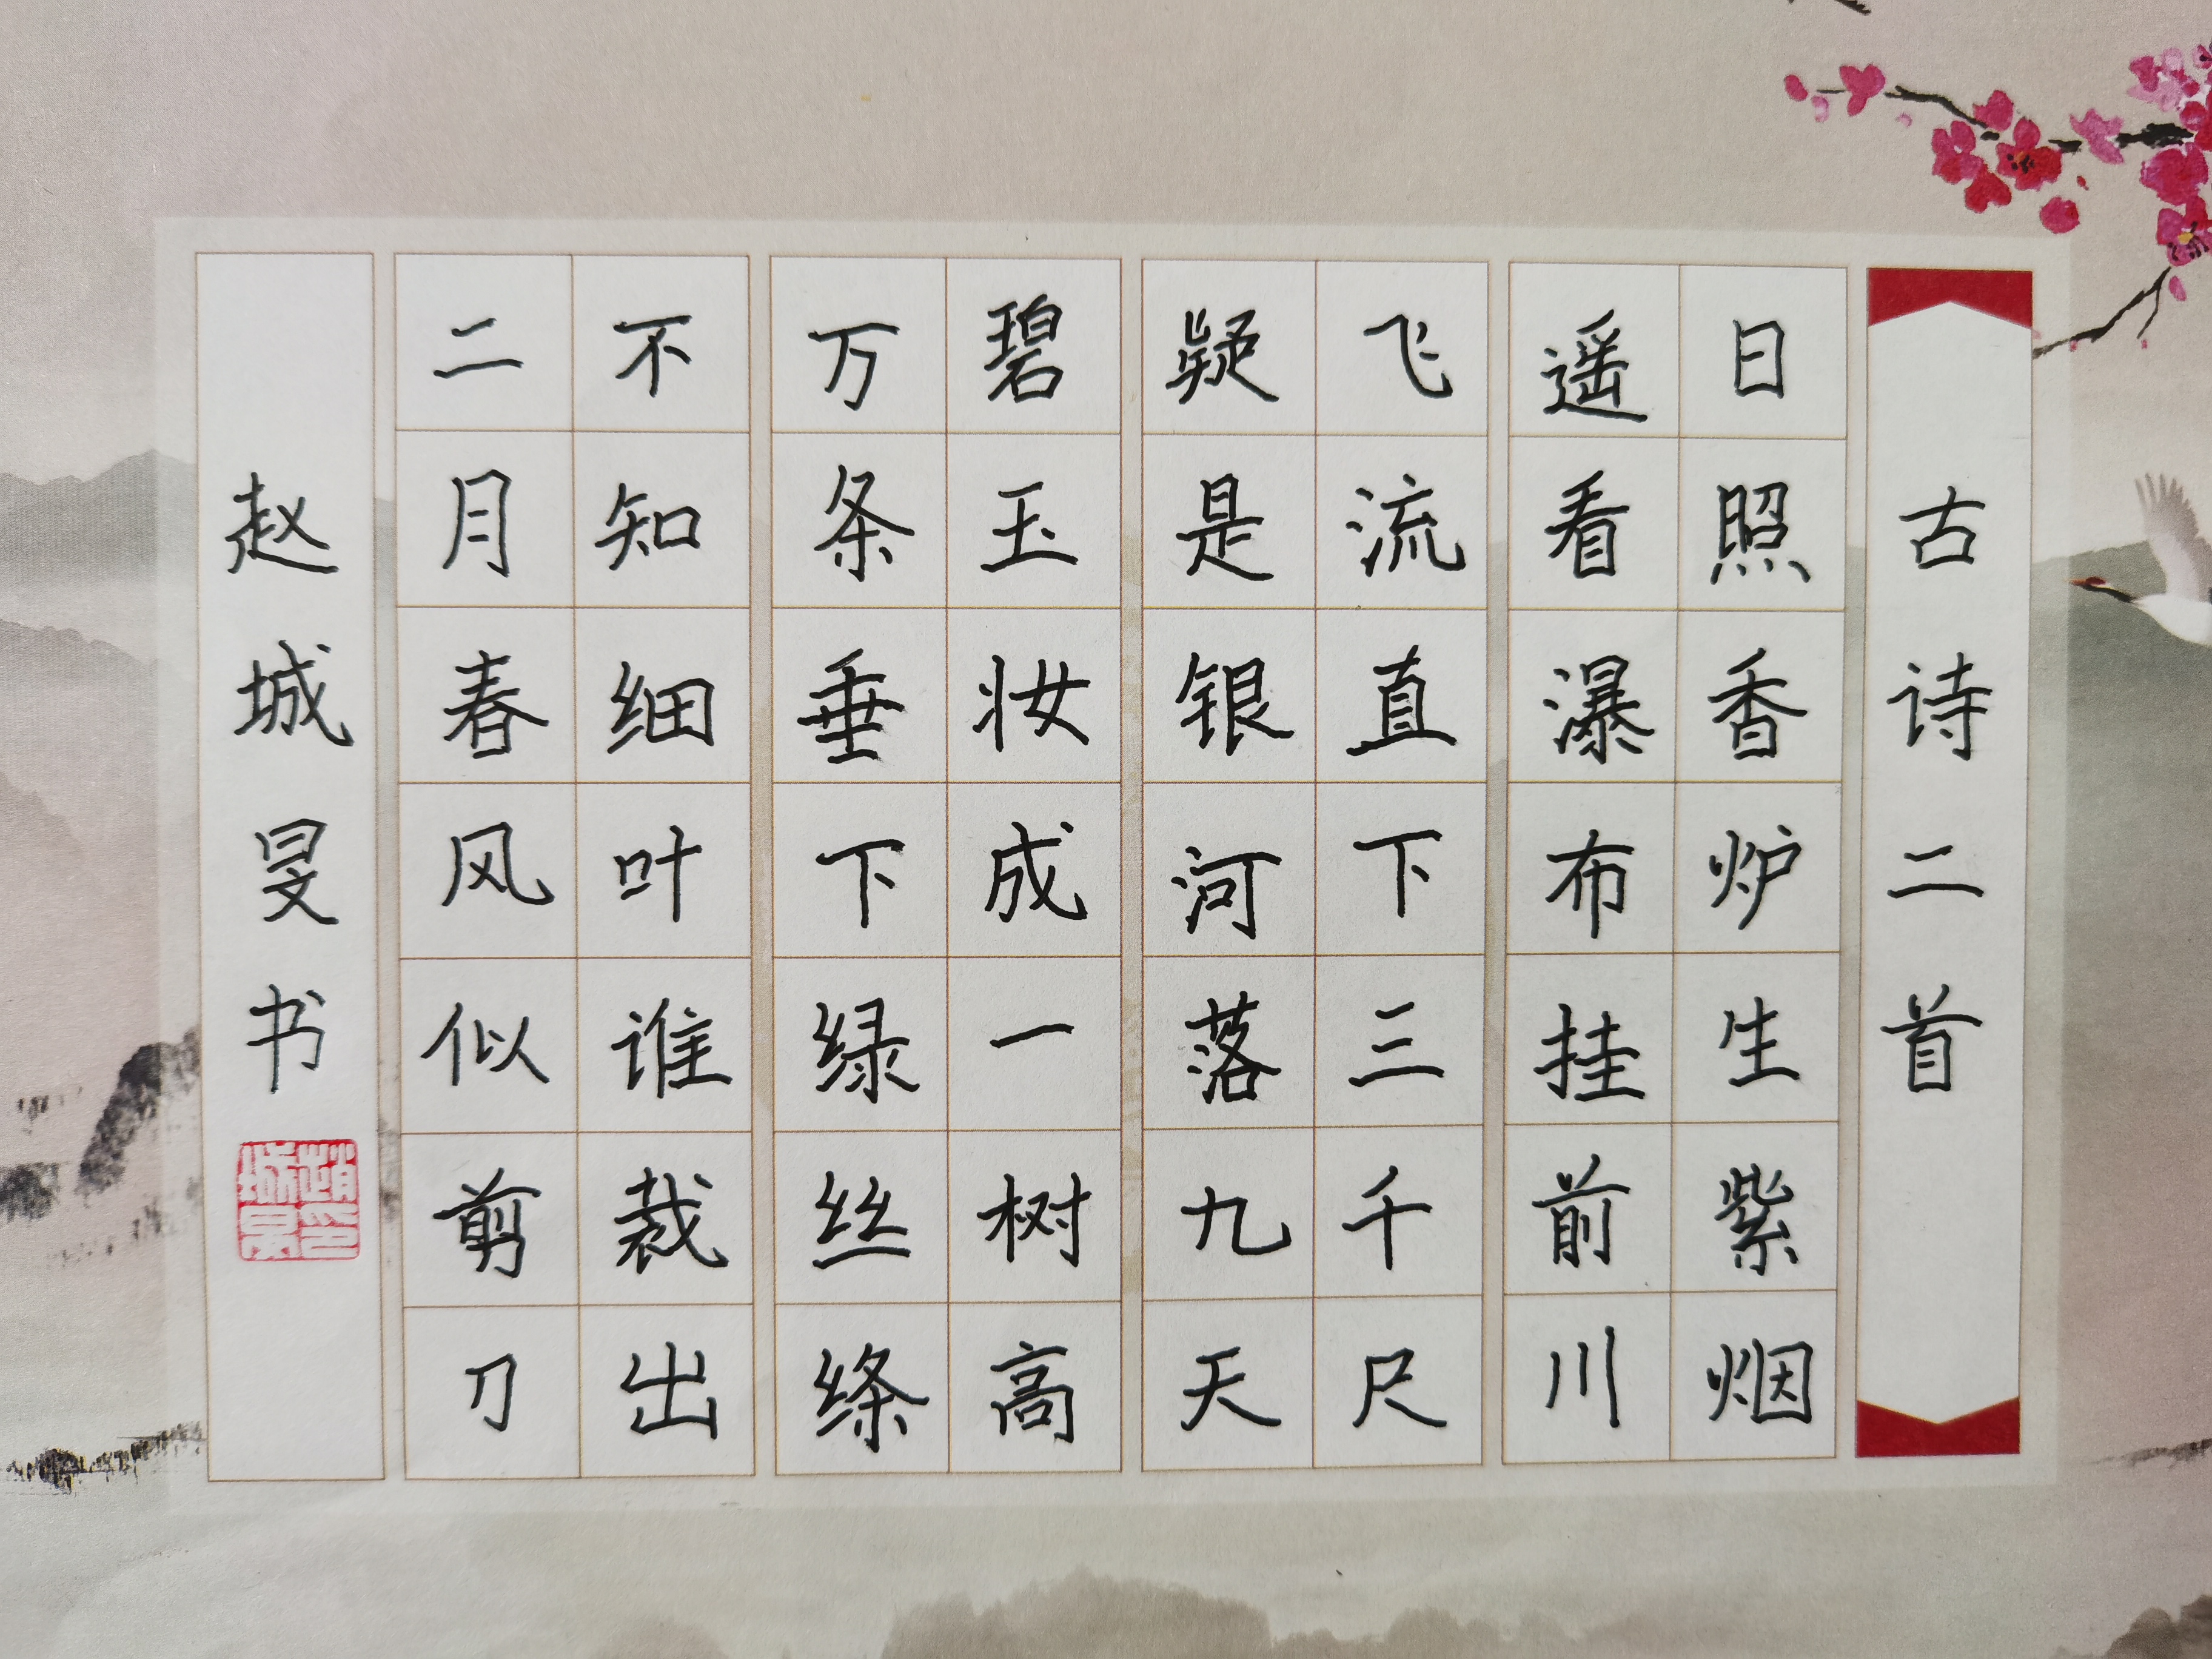 古诗二首
日照香炉生紫烟
遥看瀑布挂前川
飞流直下三千尺
疑是银河落九天
碧玉妆成一树高
万条垂下绿丝绦
不知细叶谁裁出
二月春风似剪刀
赵城旻书